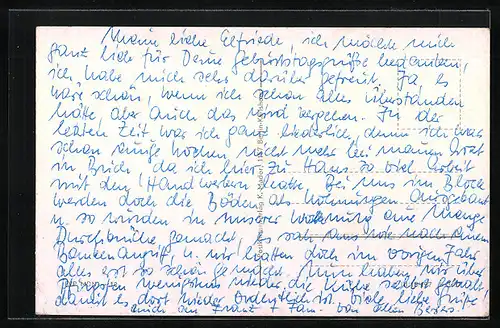 Meine liebe Elfriede, ich möchte mich
ganz lieb für Deine Geburtstagsgrüße bedanken,
ich habe mich sehr darüber gefreut. Ja es
wäre schön, wenn ich schon alles überstanden
hätte, aber auch das wird vergehen. In der
letzten Zeit war ich ganz liederlich, denn ich war
schon einige Wochen nicht mehr bei meinem Arzt
in Buch, da ich hier zu Haus so viel Arbeit
mit den Handwerkern hatte. Bei uns im Block
werden doch die Böden als Wohnungen ausgebaut
u. so wurden in unserer Wohnung eine Menge
Durchbrüche gemacht, es sah aus wie nach einem
Bombenangriff, u. wir hatten doch im vorigen Jahr
alles erst so schön gemacht. Nun haben wir über
Ostern wenigstens wieder die Küche selbst gemalt,
damit es dort wieder ordentlich ist. Viele liebe Grüße
auch an Franz + Fam. von allen